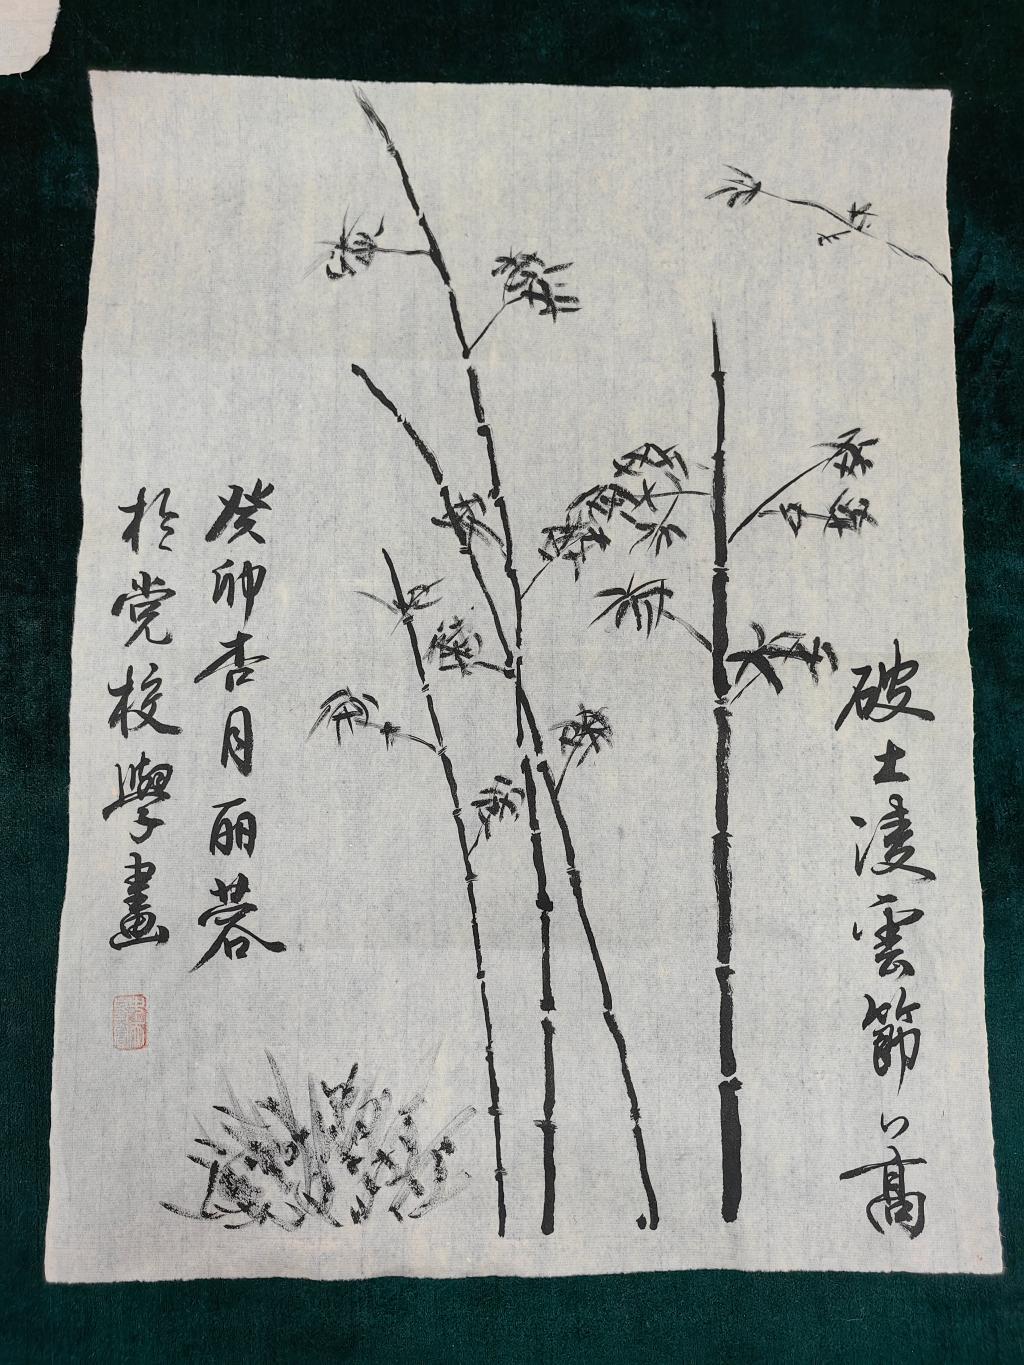 破土凌雲節節高
癸卯杏月丽蓉
於党校學畫